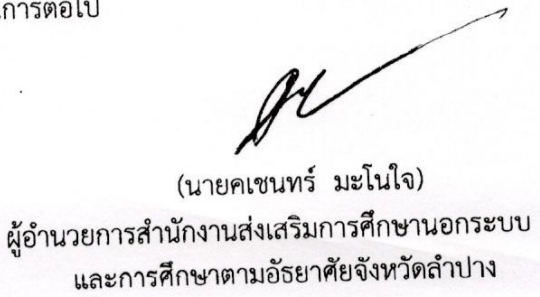 การต่อไป
(นายคเชนทร์ มะโนใจ)
ผู้อำนวยการสำนักงานส่งเสริมการศึกษานอกระบบ
และการศึกษาตามอัธยาศัยจังหวัดลำปาง